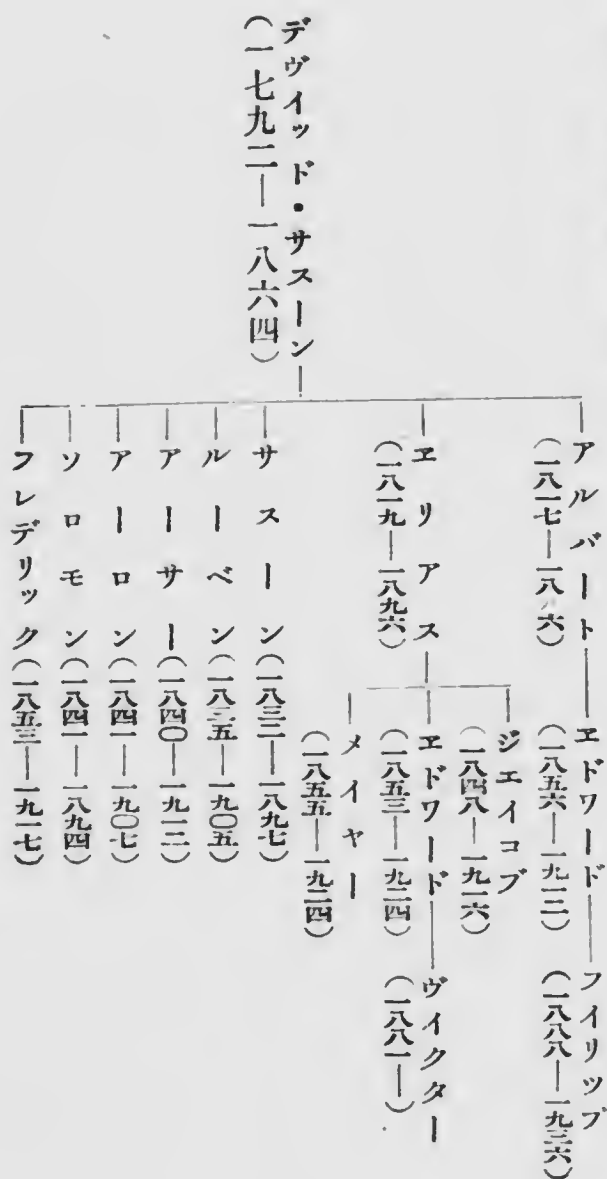 デヴイッド・サスーン
(一七九二―一八六四)
アルバート
(一八一七―一八 六)
ヱドワード
(一八五六―一九一二)
フイリップ
(一八八八―一九三六)
ヱリアス
(一八一九―一八九六)
ジエイコブ
(一八四八―一九一六)
ヱドワード
(一八五三―一九二四)
ヴイクター
(一八八一―)
メイヤー
(一八五五―一九二四)
サスーン(一八三二―一八九七)
ルーベン(一八三五―一九〇五)
アーサー(一八四〇―一九一二)
アーロン(一八四一―一九〇七)
ソロモン(一八四一―一八九四)
フレデリック(一八五三―一九一七)